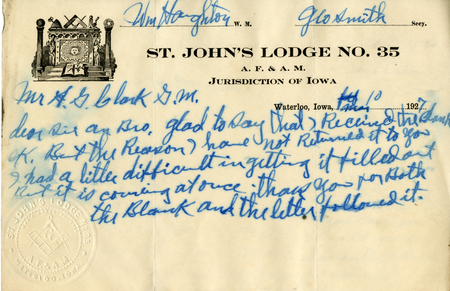 Wm Houghton W. M. Geo Smith Secy.
ST. JOHN'S LODGE NO. 35
A. F. & A. M.
JURISDICTION OF IOWA
Mr A. G. Clark G. M.
Waterloo, Iowa, 10 1927
dear Sir an Bro, glad to Say that I Received the Blank
OK. But the Reason I have not Returned it to You
I had a litter difficult in getting it filled out
But it is coming at once, thans You for Both
the Blank and the letter followed it.
ST. JOHN'S LODGE NO. 35
A.F. & A.M.
WATERLOO, IOWA